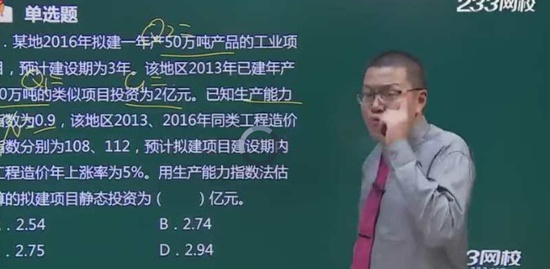 单选题
233网校
. 某地2016年拟建一年产50万吨产品的工业项
目，预计建设期为3年。该地区2013年已建年产
0万吨的类似项目投资为2亿元。已知生产能力
指数为0.9，该地区2013、2016年同类工程造价
指数分别为108、112，预计拟建项目建设期内
工程造价年上涨率为5%。用生产能力指数法估
算的拟建项目静态投资为（ ）亿元。
. 2.54 B. 2.74
. 2.75 D. 2.94
3网校